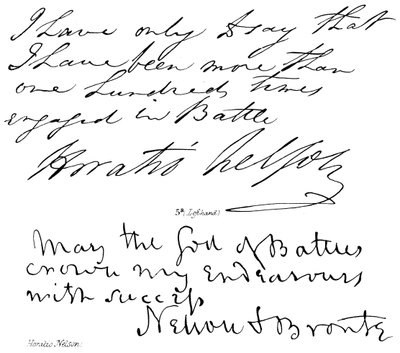 I have only to say that
I have been more than
one hundred times
engaged in Battle
Horatio Nelson
5th (Lefthand)
May the God of Battles
crown my Endeavours
with success
Nelson & Bronte
Horatio Nelson.